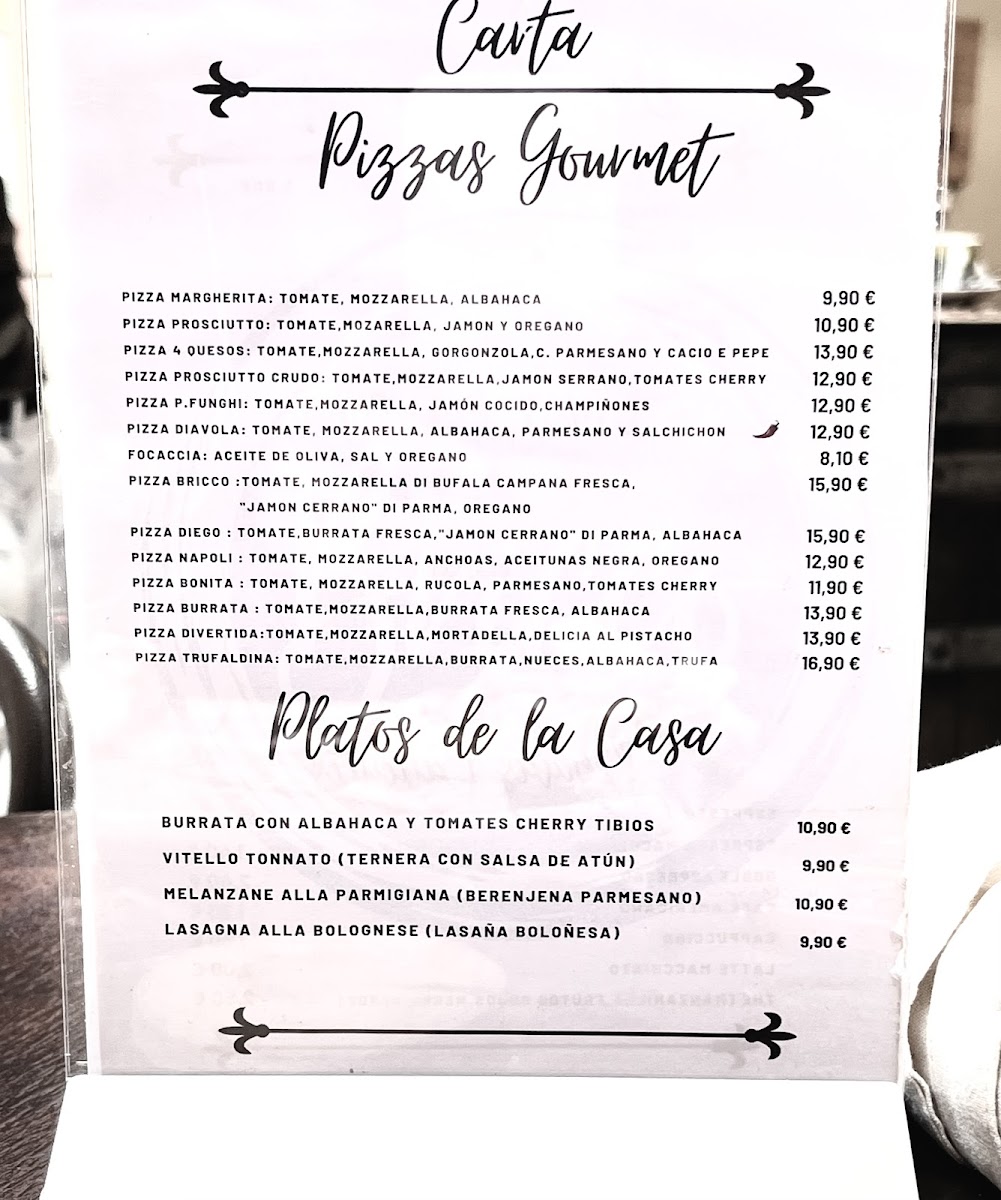 Carta
Pizzas Gourmet
PIZZA MARGHERITA: TOMATE, MOZZARELLA, ALBAHACA 9,90 €
PIZZA PROSCIUTTO: TOMATE,MOZARELLA, JAMON Y OREGANO 10,90 €
PIZZA 4 QUESOS: TOMATE,MOZZARELLA, GORGONZOLA,C. PARMESANO Y CACIO E PEPE 13,90 €
PIZZA PROSCIUTTO CRUDO: TOMATE,MOZZARELLA,JAMON SERRANO,TOMATES CHERRY 12,90 €
PIZZA P.FUNGHI: TOMATE,MOZZARELLA, JAMÓN COCIDO,CHAMPIÑONES 12,90 €
PIZZA DIAVOLA: TOMATE, MOZZARELLA, ALBAHACA, PARMESANO Y SALCHICHON 12,90 €
FOCACCIA: ACEITE DE OLIVA, SAL Y OREGANO 8,10 €
PIZZA BRICCO :TOMATE, MOZZARELLA DI BUFALA CAMPANA FRESCA, 15,90 €
"JAMON CERRANO" DI PARMA, OREGANO
PIZZA DIEGO : TOMATE,BURRATA FRESCA,"JAMON CERRANO" DI PARMA, ALBAHACA 15,90 €
PIZZA NAPOLI : TOMATE, MOZZARELLA, ANCHOAS, ACEITUNAS NEGRA, OREGANO 12,90 €
PIZZA BONITA : TOMATE, MOZZARELLA, RUCOLA, PARMESANO,TOMATES CHERRY 11,90 €
PIZZA BURRATA : TOMATE,MOZZARELLA,BURRATA FRESCA, ALBAHACA 13,90 €
PIZZA DIVERTIDA:TOMATE,MOZZARELLA,MORTADELLA,DELICIA AL PISTACHO 13,90 €
PIZZA TRUFALDINA: TOMATE,MOZZARELLA,BURRATA,NUECES,ALBAHACA,TRUFA 16,90 €
Platos de la Casa
BURRATA CON ALBAHACA Y TOMATES CHERRY TIBIOS 10,90 €
VITELLO TONNATO (TERNERA CON SALSA DE ATÚN) 9,90 €
MELANZANE ALLA PARMIGIANA (BERENJENA PARMESANO) 10,90 €
LASAGNA ALLA BOLOGNESE (LASAÑA BOLOÑESA) 9,90 €